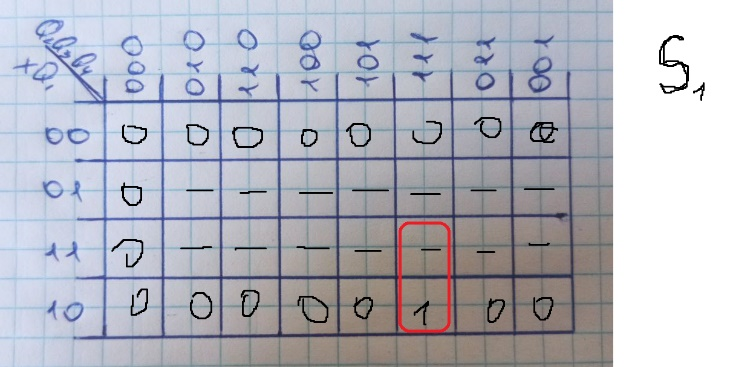 Q₂Q₃Q₄
xQ₁
000 010 110 100 101 111 011 001
00 0 0 0 0 0 0 0 0
01 0 — — — — — — —
11 0 — — — — — — —
10 0 0 0 0 0 1 0 0
S₁